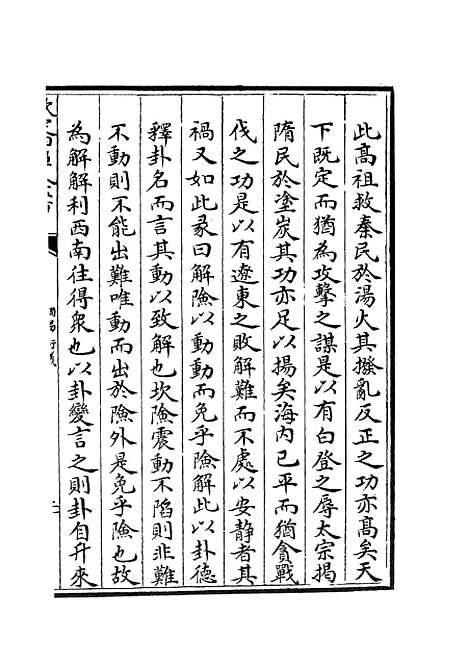 此高祖救秦民於湯火其撥亂反正之功亦高矣天
下既定而猶為攻擊之謀是以有白登之辱太宗揭
隋民於塗炭其功亦足以揚矣海内已平而猶貪戰
伐之功是以有遼東之敗解難而不處以安静者其
禍又如此彖曰解險以動動而免乎險解此以卦德
釋卦名而言其動以致解也坎險震動不陷則非難
不動則不能出難唯動而出於險外是免乎險也故
為解解利西南往得衆也以卦變言之則卦自升來